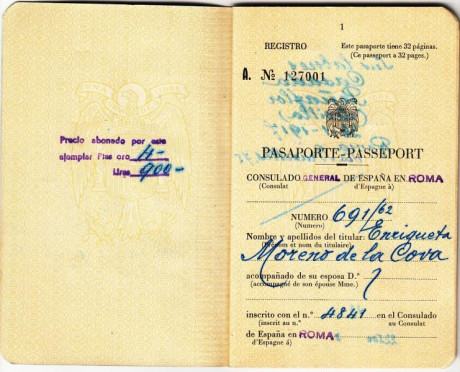 Precio abonado por este
ejemplar Ptas oro 4-
Liras 900-
1
REGISTRO
Este pasaporte tiene 32 páginas.
(Ce passeport a 32 pages.)
A. Nº 127001
PASAPORTE-PASSEPORT
CONSULADO GENERAL DE ESPAÑA EN ROMA
(Consulat
d'Espagne à)
NUMERO 691/62
(Numero)
Nombre y apellidos del titular: Enriqueta
(Prénom et nom du titulaire)
Moreno de la Cova
acompañado de su esposa D.ª
(accompagné de son épouse Mme.)
inscrito con el n.º 4841 en el Consulado
(inscrit au n.º
au Consulat
de España en ROMA
d'Espagne á)